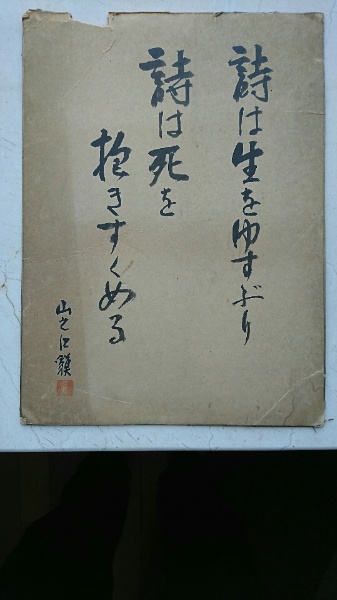 詩は生をゆすぶり
詩は死を
抱きすくめる
山之口貘